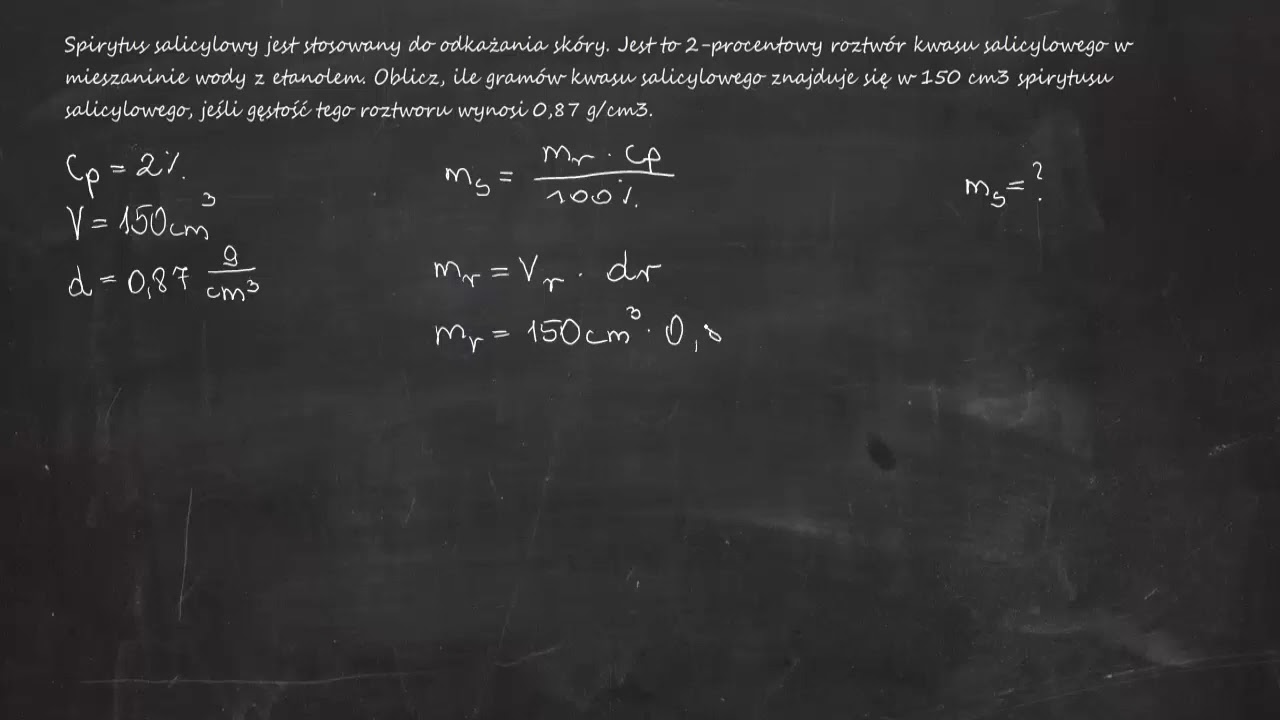 Spirytus salicylowy jest stosowany do odkażania skóry. Jest to 2-procentowy roztwór kwasu salicylowego w
mieszaninie wody z etanolem. Oblicz, ile gramów kwasu salicylowego znajduje się w 150 cm3 spirytusu
salicylowego, jeśli gęstość tego roztworu wynosi 0,87 g/cm3.
Cp = 2%
V = 150cm³
d = 0,87 g/cm³
ms = mr · cp / 100%
mr = Vr · dr
mr = 150cm³ · 0,
ms = ?